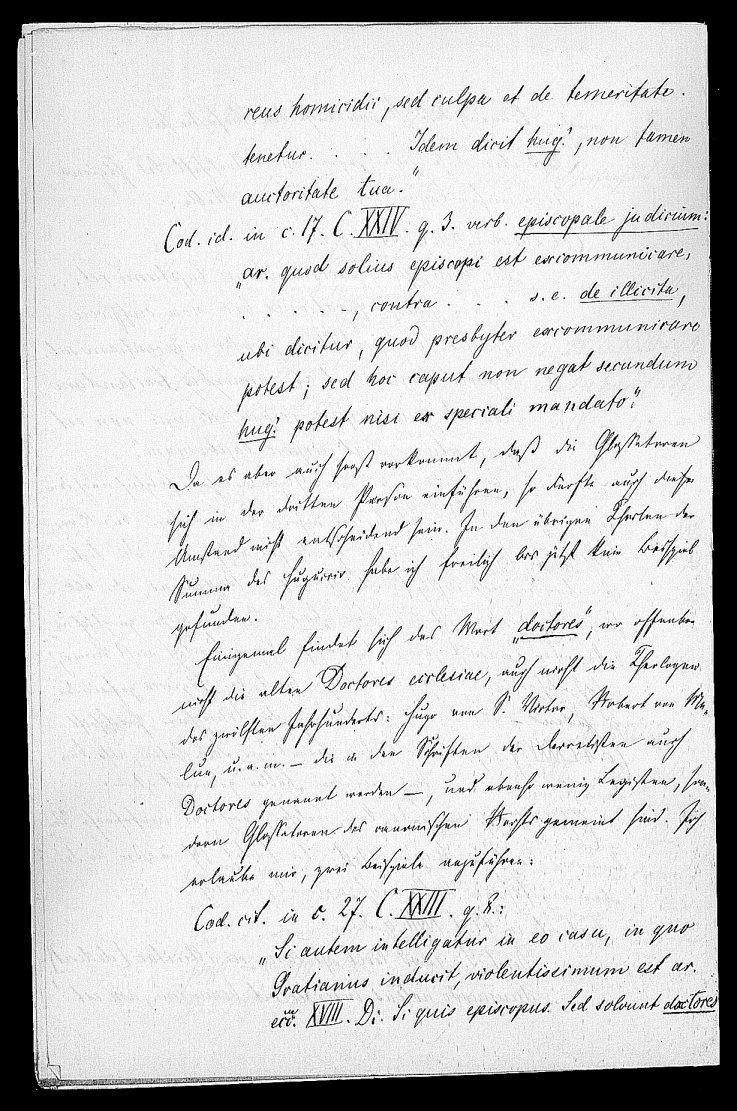 reus homicidii, sed culpa et de temeritate
tenetur. . . . Idem dicit hug', non tamen
auctoritate tua."
Cod. id. in c. 17. C. XXIV. q. 3. verb. episcopale judicium:
"ar. quod solius episcopi est excommunicare,
. . . . . , contra . . . s. e. de illicita,
ubi dicitur, quod presbyter excommunicare
potest; sed hoc caput non negat secundum
hug' potest nisi ex speciali mandato".
Da es aber auch sonst vorkommt, daß die Glossatoren
sich in der dritten Person einführen, so dürfte auch dieser
Umstand nicht entscheidend sein. In den übrigen Theilen der
Summa des Huguccio habe ich freilich bis jetzt kein Beispiel
gefunden.
Einigemal findet sich das Wort "doctores", wo offenbar
nicht die alten Doctores ecclesiae, auch nicht die Theologen
des zwölften Jahrhunderts: Hugo von S. Victor, Robert von Me-
lun, u. a. m. — die in den Schriften der Decretisten auch
Doctores genannt werden —, und ebenso wenig Legisten, son-
dern Glossatoren des canonischen Rechts gemeint sind. Ich
erlaube mir, zwei Beispiele anzuführen:
Cod. cit. in c. 27. C. XXIII. q. 8.:
"Si autem intelligatur in eo casu, in quo
Gratianus inducit, violentissimum est ar.
XVIII. Di. Si quis episcopus. Sed solvunt doctores